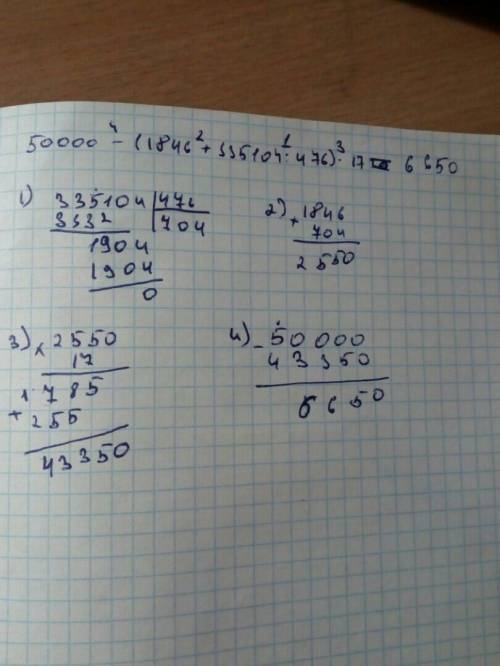 50000 ⁴ - (1846 ² + 335104 ¹: 476) ³· 17 = 6650
1) 335104 | 476
3332 | 704
1904
1904
0
2) + 1846
704
2550
3) × 2550
17
1785
+ 255
43350
4) - 50000
43350
6650